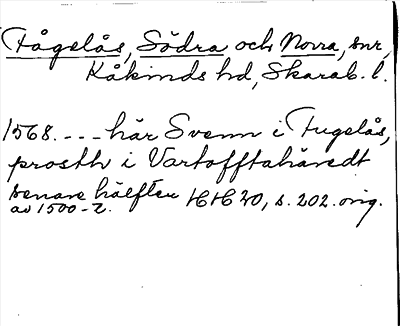 Fågelås, Södra och Norra, snr,
Kåkinds hd, Skarab. l.
1568. --- här Svenn i Fugelås,
prosth i Vartofftahäredt
senare hälften HH 20, s. 202. orig.
av 1500-t.